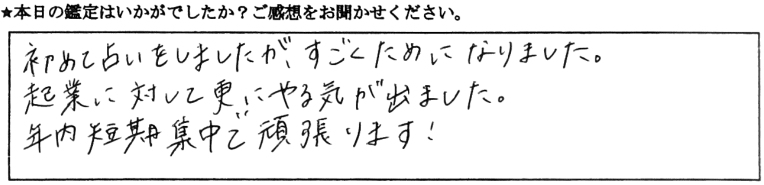 ★本日の鑑定はいかがでしたか？ご感想をお聞かせください。
初めて占いをしましたが、すごくためになりました。
起業に対して更にやる気が出ました。
年内短期集中で頑張ります！